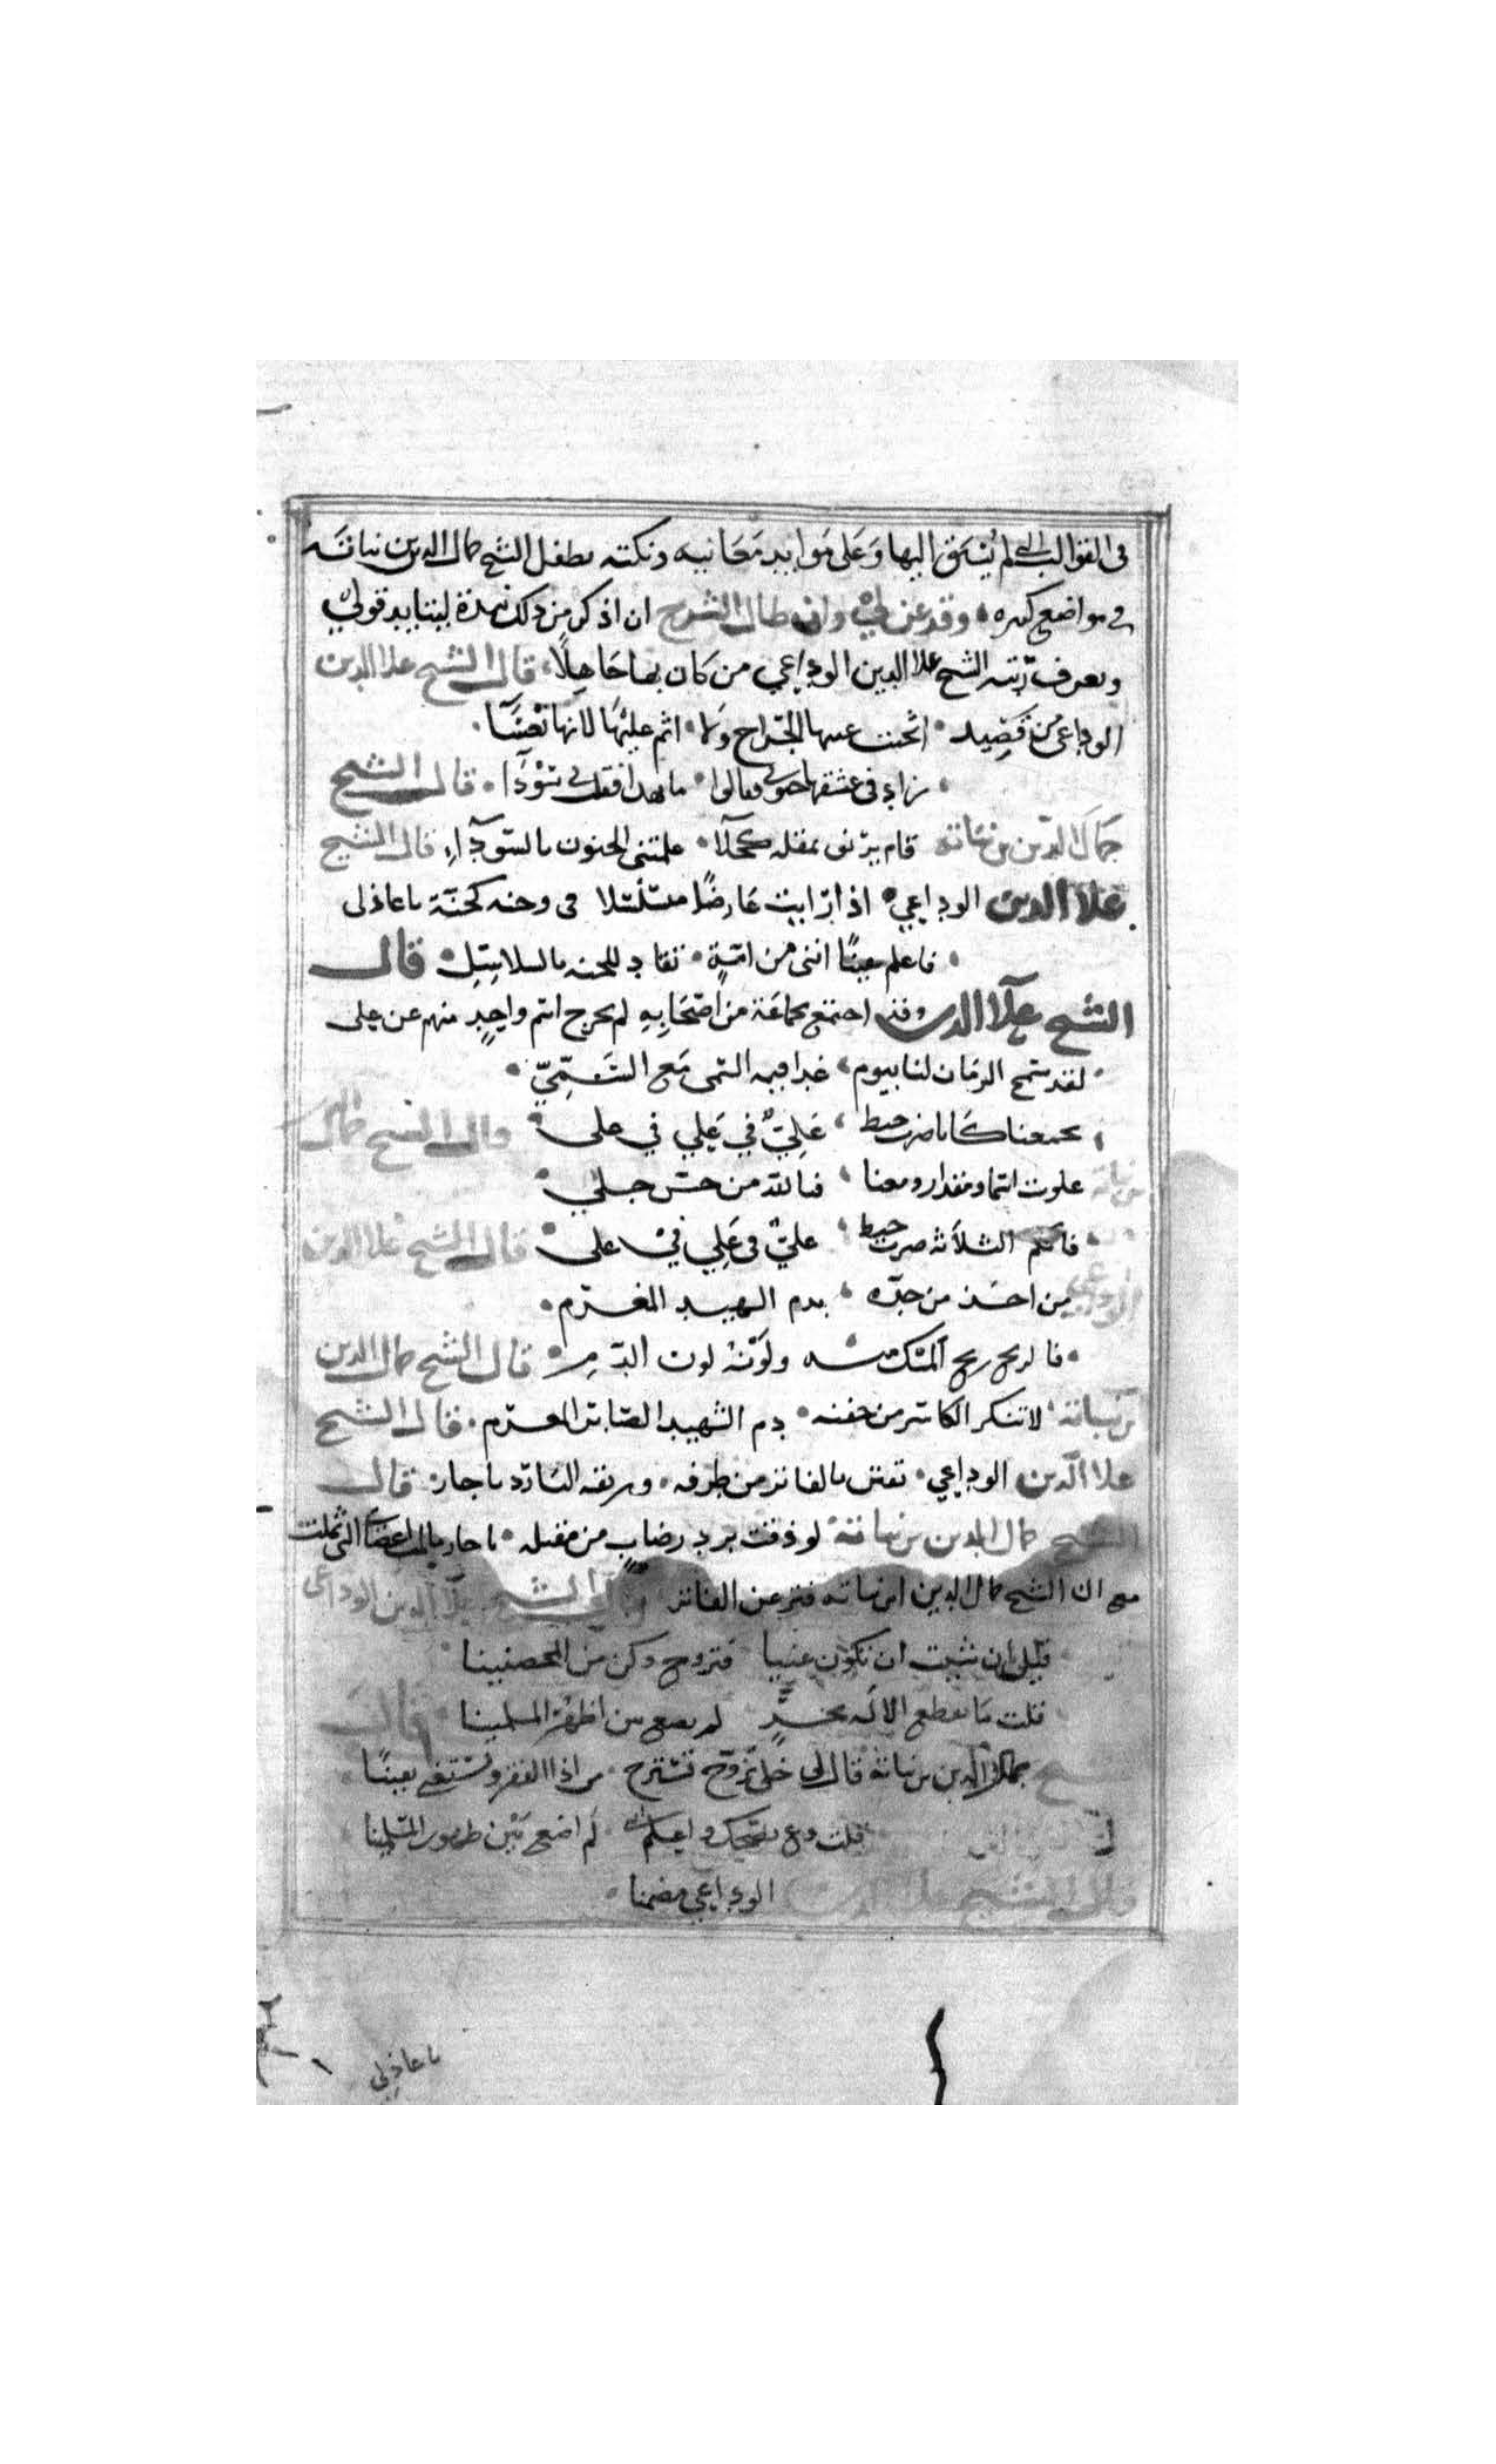 في القوالب التي لم يسبق اليها وعلى موايد معانيه ونكته تطفل الشيخ جمال الدين بن نباتة
في مواضع كثيرة وقد عن لي وان طال الشرح ان اذكر من ذلك نبذة ليتايد قولي
ويعرف رتبة الشيخ علا الدين الوداعي من كان بها جاهلا قال الشيخ علا الدين
الوداعي من قصيد اثخنت عينها الجراح ولا اثم عليها لانها نعسا
زاد في عشقها جنوني فقالوا ما بهذا فقلت بي سودا قال الشيخ
جمال الدين بن نباتة قام يرنو بمقلة كحلا علمتني الجنون بالسودآء قال الشيخ
علا الدين الوداعي اذا رايت عارضا مسلسلا في وجنة كجنة يا عاذلي
فاعلم يقينا انني من امة تقاد للجنة بالسلاسل قال
الشيخ علآ الدين وقد اجتمع بجماعة من اصحابه لم يخرج اسم واحد منهم عن علي
لقد سمح الزمان لنا بيوم غدا فيه السمي مع السمي
يجمعنا كانا ضرب خيط علي في علي في علي قال الشيخ جمال
بن نباتة علوت اسما ومقدارا ومعنا فيا لله من حسن جلي
فانكم الثلاثة ضرب خيط علي في علي في علي قال الشيخ علا الدين
الوداعي من احسن من خده بدم الشهيد المغرم
فالريح ريح المسك منه ولونه لون الدم قال الشيخ جمال الدين
بن نباتة لا تنكر الكاسر من جفنه دم الشهيد الصابر المغرم قال الشيخ
علا الدين الوداعي تفتن بالفاتر من طرفه وريقه البارد يا حار قال
الشيخ جمال الدين بن نباتة لو ذقت برد رضاب من مقبله يا حار ما لمت اعضاي التي ثملت
مع ان الشيخ جمال الدين ابن نباته فتر عن الفاتر قال الشيخ علآ الدين الوداعي
قيل ان شيت ان تكون غنيا فتزوج وكن من المحصنينا
قلت ما يقطع الاله بحر لم يضع بين اظهر المسلمينا قال
الشيخ جمال الدين بن نباتة قال لي خلي تزوج تسترح من اذا الفقر وتستغني يقينا
قلت دع نصحك واعلم انني لم اضع بين ظهور المسلمينا
قال الشيخ علا الدين الوداعي مضمنا
يا عاذلي